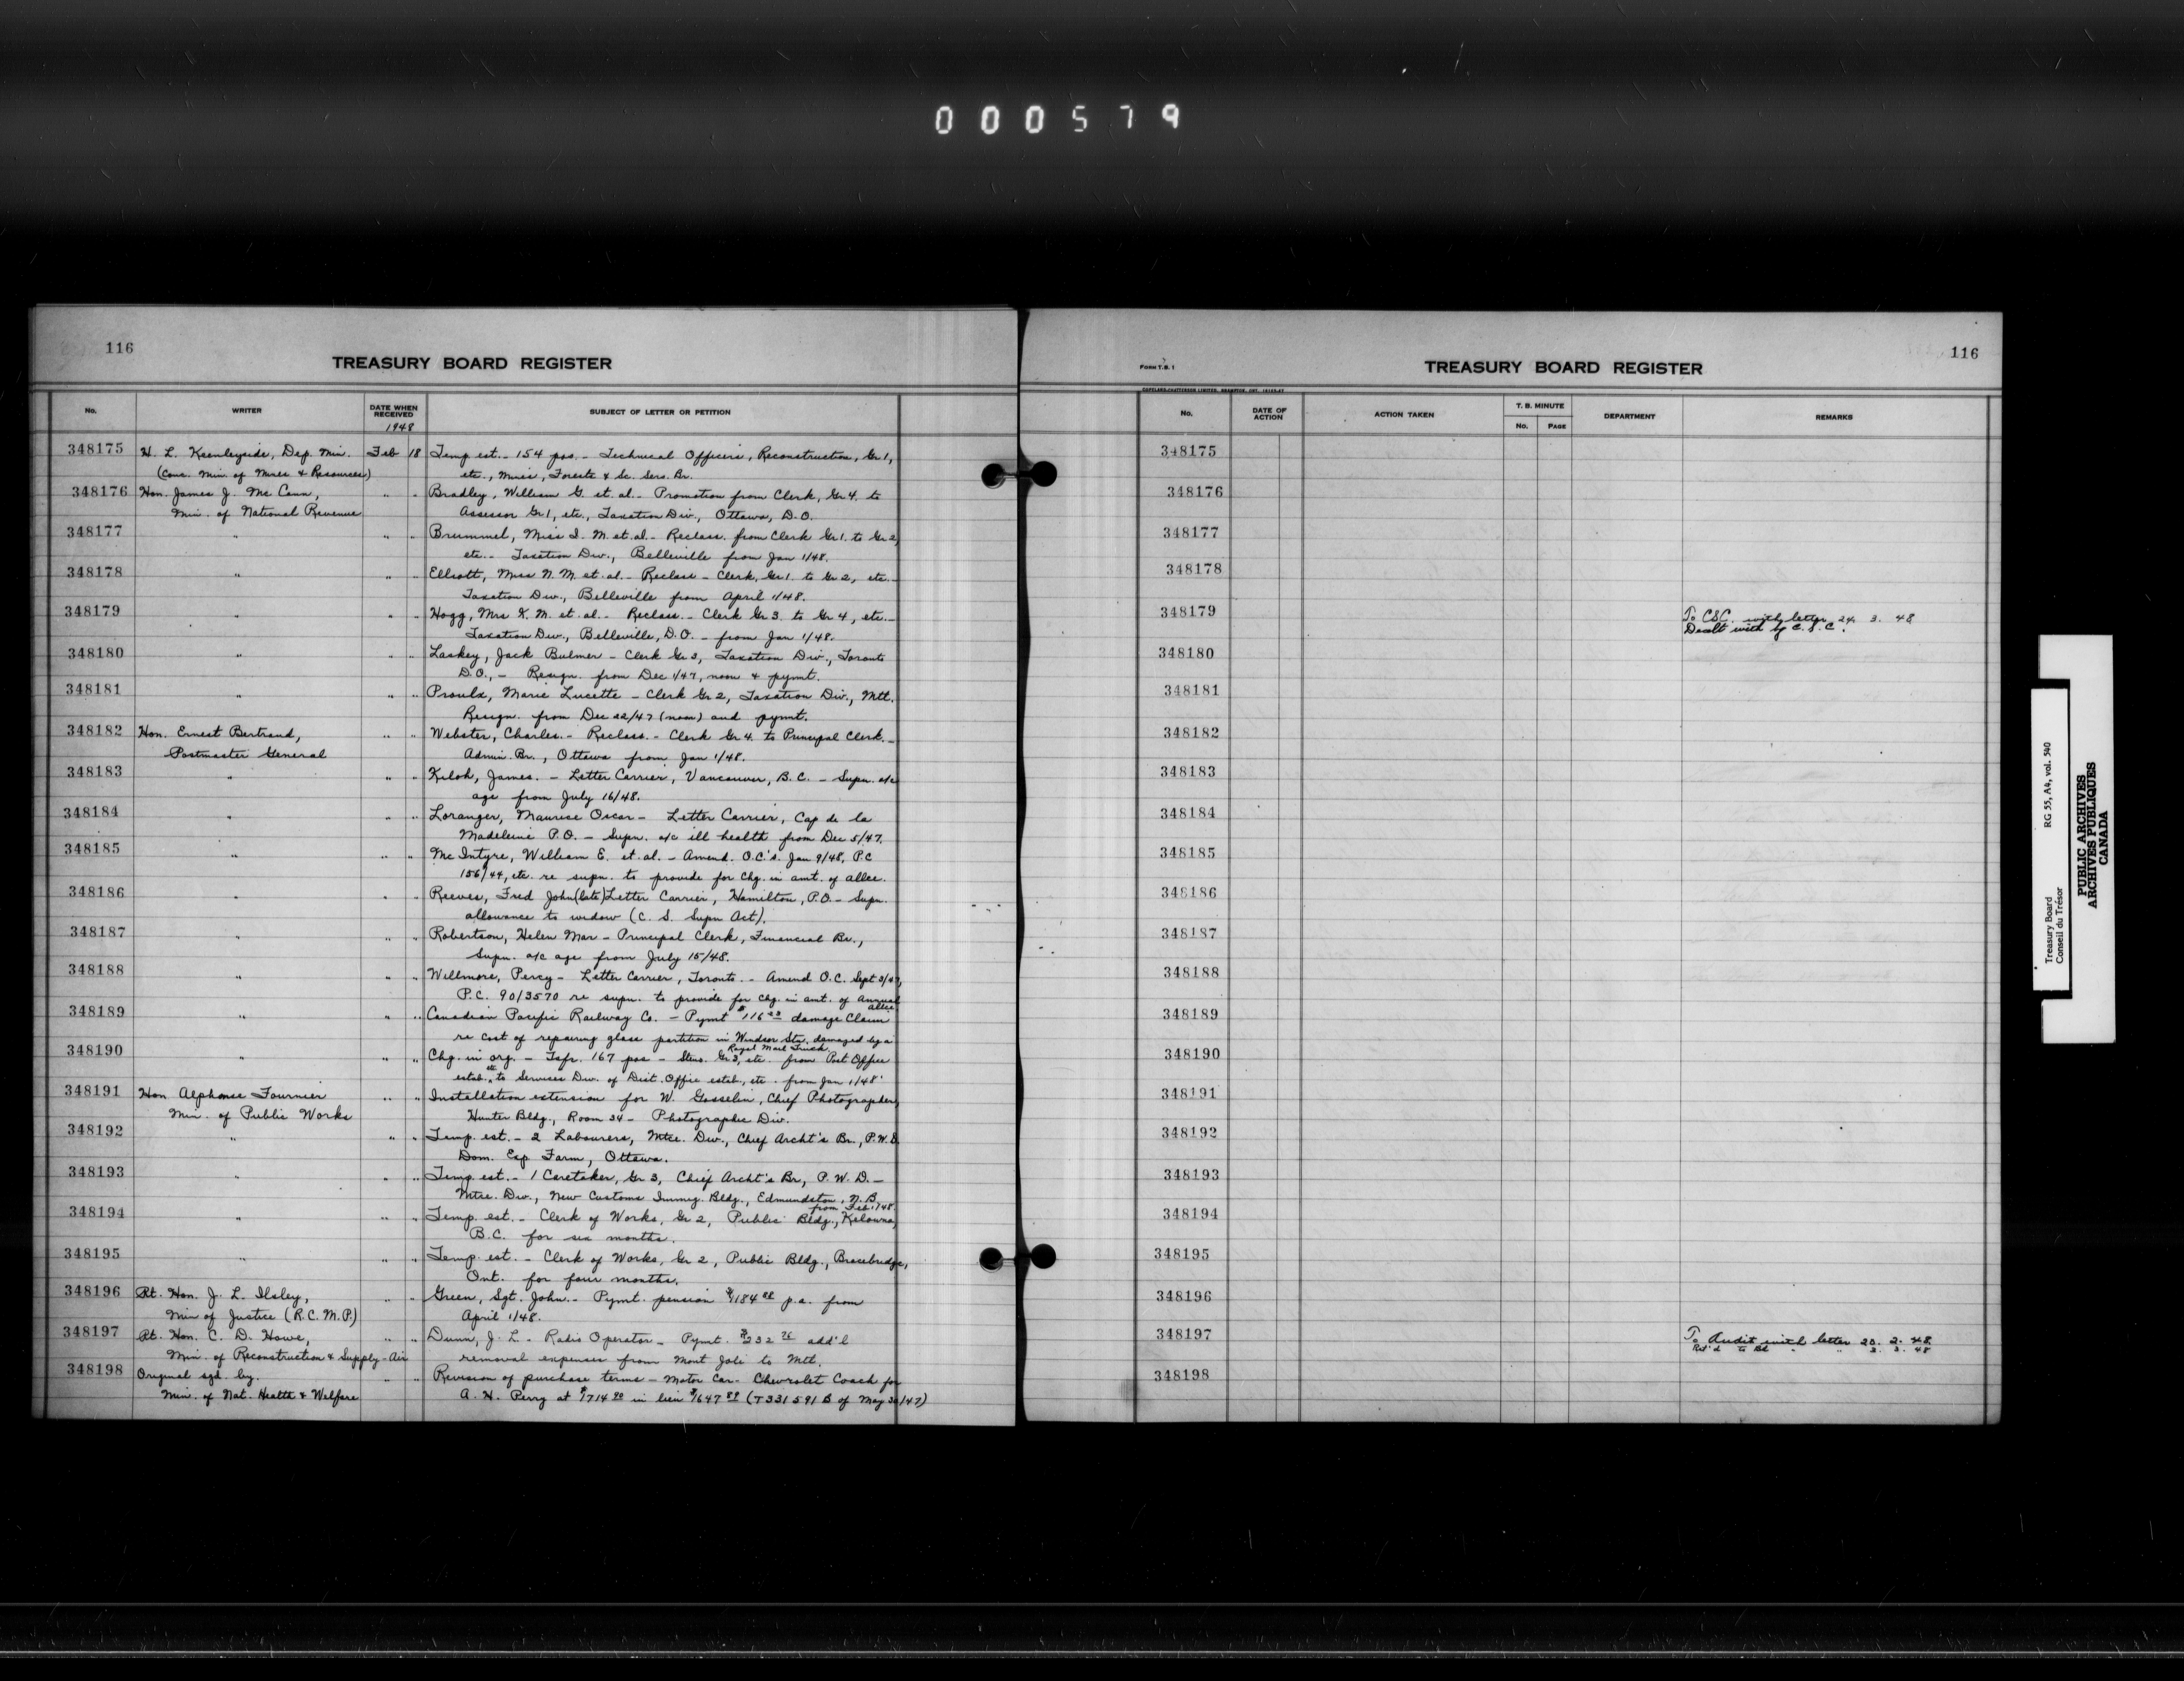 000579
116
TREASURY BOARD REGISTER
No. WRITER DATE WHEN RECEIVED SUBJECT OF LETTER OR PETITION
1948
348175 H. L. Keenleyside, Dep. Min. Feb 18 Temp est. - 154 pos. - Technical Officers, Reconstruction, Gr 1,
(Conc. Min. of Mines & Resources) etc., Mines, Forests & Sc. Sers. Br.
348176 Hon. James J. McCann, " " Bradley, William G. et. al. - Promotion from Clerk, Gr 4. to
Min. of National Revenue Assessor Gr 1, etc., Taxation Div., Ottawa, D.O.
348177 " " " Brummel, Miss I. M. et. al. - Reclass. from Clerk Gr 1. to Gr 2,
etc. - Taxation Div., Belleville from Jan 1/48.
348178 " " " Elliott, Miss N. M. et. al. - Reclass - Clerk, Gr 1. to Gr 2, etc. -
Taxation Div., Belleville from April 1/48.
348179 " " " Hogg, Mrs K. M. et. al. - Reclass. - Clerk Gr 3 to Gr 4, etc. -
Taxation Div., Belleville, D.O. - from Jan 1/48.
348180 " " " Laskey, Jack Bulmer - Clerk Gr 3, Taxation Div., Toronto
D.O., - Resign. from Dec 1/47, noon & pymt.
348181 " " " Proulx, Marie Lucette - Clerk Gr 2, Taxation Div., Mtl.
Resign. from Dec 22/47 (noon) and pymt.
348182 Hon. Ernest Bertrand, " " Webster, Charles. - Reclass. - Clerk Gr 4. to Principal Clerk. -
Postmaster General Admin. Br., Ottawa from Jan 1/48.
348183 " " " Kiloh, James. - Letter Carrier, Vancouver, B.C. - Supn. a/c
age from July 16/48.
348184 " " " Loranger, Maurice Oscar - Letter Carrier, Cap de la
Madeleine P.O. - Supn. a/c ill health from Dec 5/47.
348185 " " " McIntyre, William E. et. al. - Amend. O.C's. Jan 9/48, P.C
156/44, etc. re supn. to provide for chg. in amt. of allce.
348186 " " " Reeves, Fred John (late) Letter Carrier, Hamilton, P.O. - Supn.
allowance to widow (C. S. Supn Act).
348187 " " " Robertson, Helen Mar - Principal Clerk, Financial Br.,
Supn. a/c age from July 15/48.
348188 " " " Willmore, Percy - Letter Carrier, Toronto. - Amend O.C. Sept 3/47,
P.C. 90/3570 re supn. to provide for chg. in amt. of Annual
allce.
348189 " " " Canadian Pacific Railway Co. - Pymt $116 damage Claim
re cost of repairing glass partition in Windsor Stn. damaged by a
Royal Mail Truck.
348190 " " " Chg. in org. - Tsfr. 167 pos - Steno. Gr 3, etc. from Post Office
estab. etc to Services Div. of Dist. Office estab., etc. from Jan 1/48.
348191 Hon Alphonse Fournier " " Installation extension for W. Gosselin, Chief Photographer,
Min. of Public Works Hunter Bldg., Room 34 - Photographic Div.
348192 " " " Temp. est. - 2 Labourers, Mtce. Div., Chief Archt's Br., P.W.D.
Dom. Exp Farm, Ottawa.
348193 " " " Temp. est. - 1 Caretaker, Gr 3, Chief Archt's Br, P.W.D. -
Mtce. Div., New Customs Immig. Bldg., Edmundston, N.B.
from Feb 1/48.
348194 " " " Temp. est. - Clerk of Works, Gr 2, Public Bldg., Kelowna,
B.C. for six months.
348195 " " " Temp. est. - Clerk of Works, Gr 2, Public Bldg., Bracebridge,
Ont. for four months.
348196 Rt. Hon. J. L. Ilsley, " " Green, Sgt. John. - Pymt. pension p.a. from
Min of Justice (R.C.M.P.) April 1/48.
348197 Rt. Hon. C. D. Howe, " " Dunn, J. L - Radio Operator - Pymt. $232 76 add'l
Min. of Reconstruction & Supply - Air removal expenses from Mont Joli to Mtl.
348198 Original sgd. by. " " Revision of purchase terms - Motor Car - Chevrolet Coach for
Min. of Nat. Health & Welfare A. H. Perry at $1714 90 in lieu $1647 89 (T331591B of May 30/47)
116
FORM T.B. 1
TREASURY BOARD REGISTER
No. DATE OF ACTION ACTION TAKEN T. B. MINUTE No. PAGE DEPARTMENT REMARKS
348175
348176
348177
348178
348179 To CSC. with letter 24. 3. 48
Dealt with by C.S.C.
348180
348181
348182
348183
348184
348185
348186
348187
348188
348189
348190
348191
348192
348193
348194
348195
348196
348197 To Audit with letter 20. 2. 48
Ret'd to Bd " " 3. 3. 48
348198
Treasury Board RG 55, A4, vol. 540
Conseil du Trésor
PUBLIC ARCHIVES
ARCHIVES PUBLIQUES
CANADA